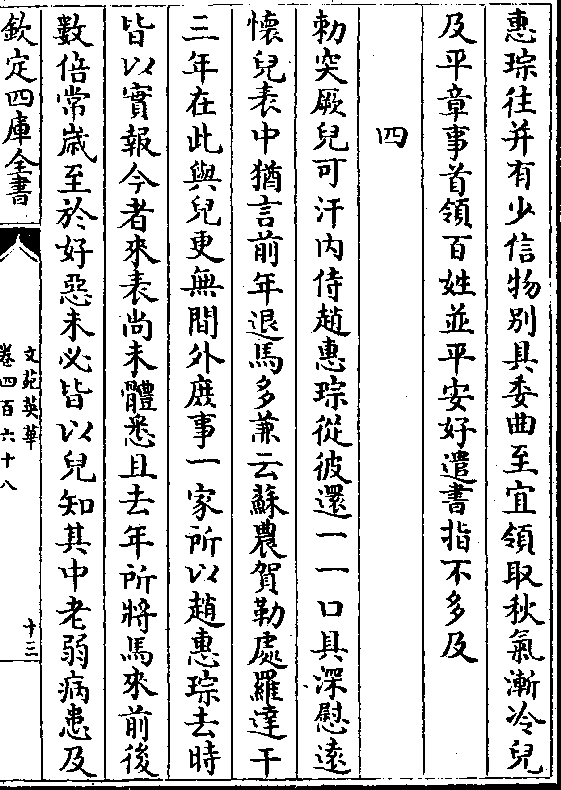 惠琮往并有少信物别具委曲至宜領取秋氣漸冷兒
及平章事首領百姓並平安好遣書指不多及
四
勅突厥兒可汗内侍趙惠琮從彼還一一口具深慰遠
懷兒表中猶言前年退馬多兼云蘇農賀勒處羅達干
三年在此與兒更無間外庶事一家所以趙惠琮去時
皆以實報今者來表尚未體悉且去年所將馬來前後
數倍常歳至於好惡未必皆以兒知其中老弱病患及
欽定四庫全書
文苑英華
卷四百六十八
十三